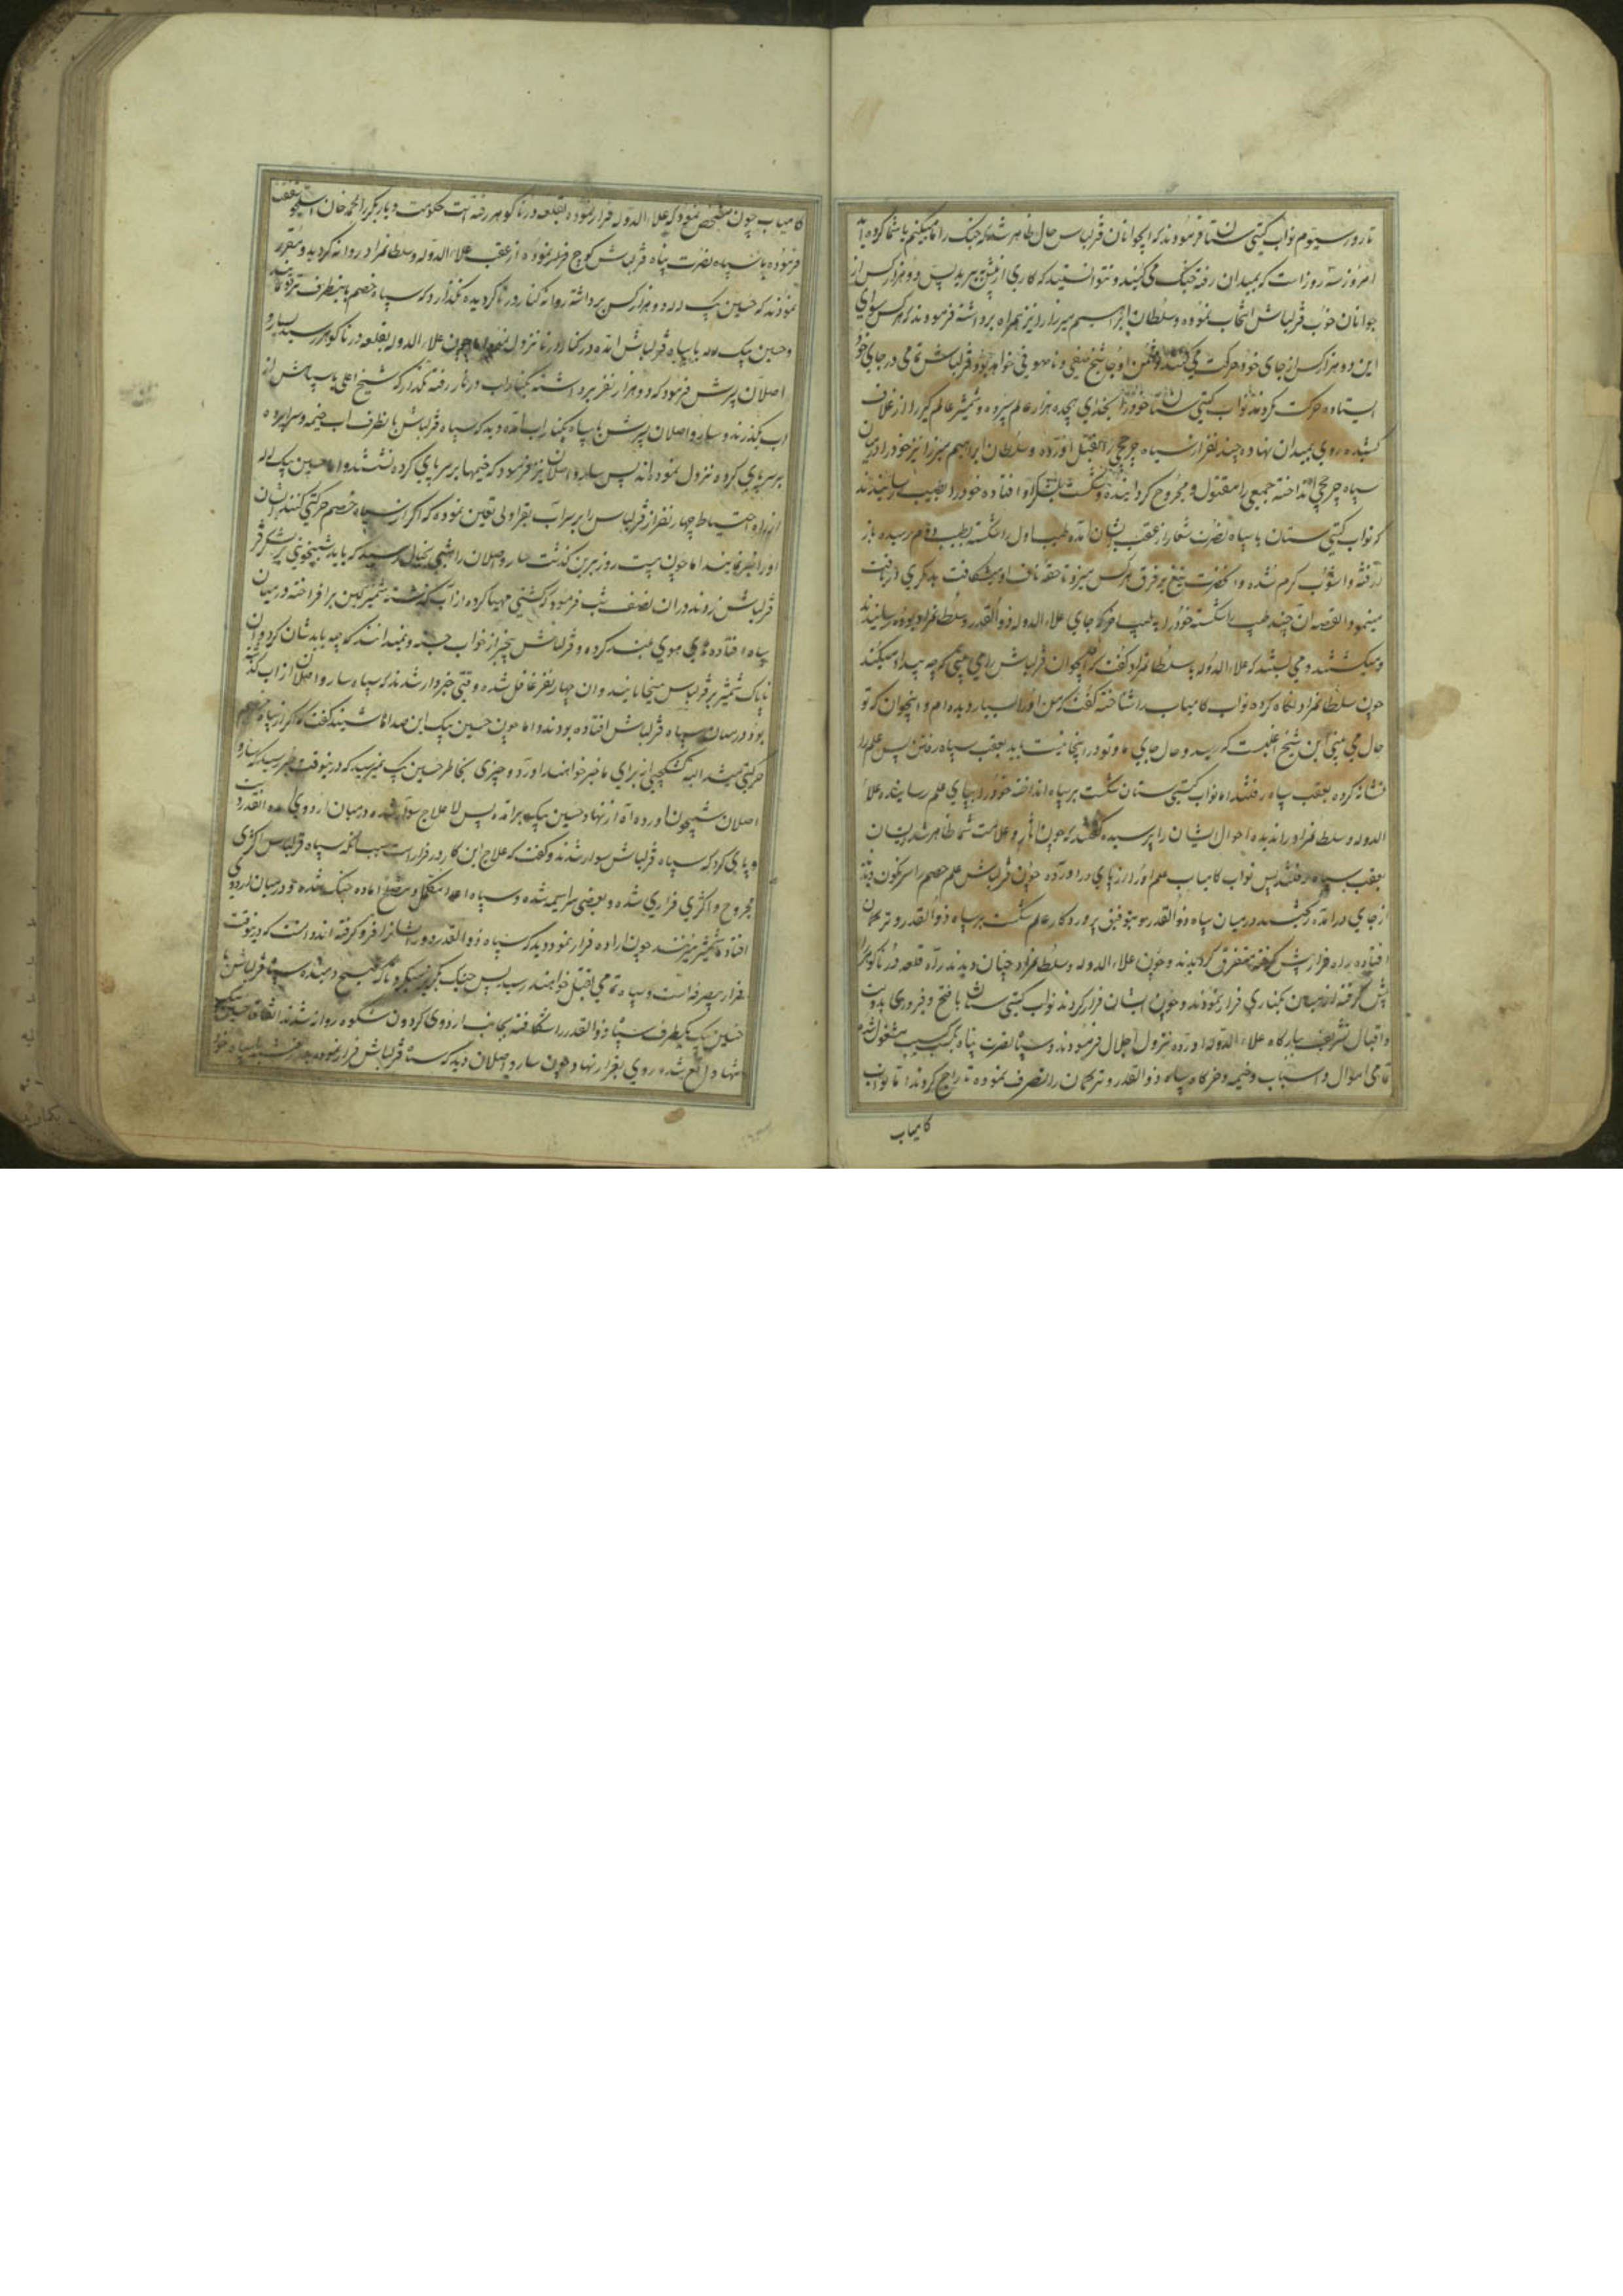 تا روز سیوم نواب کیتی ستان فرمودند که ای جوانان قزلباش حال ظاهر شد که جنک را ما میکنیم یا شما کرده اید
امروز سه روز است که بمیدان رفته جنک می کنید و نتوانستید که کاری از پیش ببرید پس دو هزار کس از
جوانان خوب قزلباش انتخاب نموده و سلطان ابراهیم میرزا را نیز همراه برداشته فرمودند که هر کس سوای
این دو هزار کس از جای خود حرکت می کند دشمن اوجاغ شیخ صفی و نا صوفی خواهد بود و قزلباش تمامی در جای خود
ایستاده حرکت کردند نواب کیتی ستان خود را بخدای هیجده هزار عالم سپرده و شمشیر عالم کیر را از غلاف
کشیده روی بمیدان نهاده چند نفر از سپاه چرخچی را بقتل آورده و سلطان ابراهیم میرزا نیز خود را در میان
سپاه چرخچی انداخته جمعی را مقتول و مجروح کردانیده و شکست بلشکر او افتاده خود را بطیب رسانیدند
که نواب کیتی ستان با سپاه نصرت شعار از عقب ایشان آمده طیب اول را شکسته بطیب دوم رسیده باز
آشوب کرم شده و آنحضرت تیغ بر فرق هر کس میزد تا حقه ناف او میشکافت بدیکری
مینمود القصه آن چند طیب را شکسته خود را به طیب آخر که جای علاء الدوله ذو القدر و سلطانمراد بود رسانیدند
و میکشتند و می بستند که علاء الدوله به سلطانمراد کفت که این جوان قزلباش را می بینی که چه بیداد میکند
چون سلطانمراد نکاه کرده نواب کامیاب را شناخته کفت که من او را بسیار دیده ام و این جوان که تو
حال می بینی این شیخ اغلیست که رسید و حال جای ما و تو در اینجا نیست باید بعقب سپاه رفتن پس علم را
نشانه کرده بعقب سپاه رفتند اما نواب کیتی ستان شکست بر سپاه انداخته خود را بپای علم رسانیده علاء
الدوله و سلطانمراد را ندیده احوال ایشان را پرسیده کفتند که چون آثار و علامت شما ظاهر شد ایشان
بعقب سپاه رفتند پس نواب کامیاب علم او را از پای در آورده چون قزلباش علم خصم را سرنکون دیدند
از جای در آمده ریختند در میان سپاه ذو القدر و بتوفیق پروردکار عالم شکست بر سپاه ذو القدر و ترکمان
افتاده راه فرار پیش کرفته متفرق کردیدند و چون علاء الدوله و سلطانمراد چنان دیدند راه قلعه درنا کوهر را
پیش کرفته از میان بکناری فرار نمودند و چون ایشان فرار کردند نواب کیتی ستان با فتح و فیروزی بدولت
و اقبال تشریف ببارکاه علاء الدوله آورده نزول اجلال فرمودند و سپاه نصرت پناه بکسب مشغول شدند
تمامی اموال و اسباب و خیمه و خرکاه سپاه ذو القدر و ترکمان را تصرف نموده تاراج کردند اما نواب
کامیاب
کامیاب چون مشخص نمود که علاء الدوله فرار نموده بقلعه درنا کوهر رفته است حکومت دیاربکر را بمحمد خان استجلو شفقت
فرموده با سپاه نصرت پناه قزلباش کوچ فرموده از عقب علاء الدوله و سلطانمراد روانه کردید و مقرر
نمودند که حسین بیک لله دو هزار کس برداشته روانه کنار درنا کردیده نکذارد که سپاه خصم باینطرف آب
و حسین بیک لله با سپاه قزلباش آمده در کنار درنا نزول نمود اما چون علاء الدوله بقلعه درنا کوهر رسید سارو
اصلان پسرش فرمود که دو هزار نفر برداشته بکنار آب درنا رفته نکذار که شیخ اغلی با سپاهش از
آب بکذرند و سارو اصلان پسرش با سپاه بکنار آب آمده دید که سپاه قزلباش بآنطرف آب خیمه و سراپرده
بر سر پای کرده نزول نموده اند پس سارو اصلان نیز فرمود که خیمها بر سر پای کرده نشستند و اما حسین بیک لله
از راه احتیاط چهار نفر از قزلباش را بر سر آب بقراولی تعین نموده که اکر از سپاه خصم حرکتی کنند ایشان
او را خبر نمایند اما چون بیست روز برین کذشت سارو اصلان را شبی بخیال رسید که باید شبیخونی بر لشکر
قزلباش زدند در آن نصف شب فرمود که کشتی مهیا کرده از آب کذشته شمشیر کین برافراخته در میان
سپاه افتاده های هوی بلند کرده و قزلباش بیخبر از خواب جسته و نمیدانند که چه باید شان کرد و آن
ناپاک شمشیر بر قزلباش میخابانیدند و آن چهار نفر غافل شده وقتی خبردار شدند که سپاه سارو اصلان از آب کذشته
بود در میان سپاه قزلباش افتاده بودند و اما چون حسین بیک این صداها شنید کفت که اکر از سپاه خصم
حرکتی میشد البته کشکچیان از برای ما خبر خواهند آورد و چیزی بخاطر حسین بیک نمیرسید که در ینوقت خبر رسید که سارو
اصلان شبیخون آورده آه از نهاد حسین بیک برآمده پس لا علاج سوار شده در میان اردوی آمده آنقدر دست
و پای کرد که سپاه قزلباش سوار شدند و کفت که علاج این کار در فرار است سپاه قزلباش اکثری
مجروح و اکثری فراری شده و بعضی سراسیمه شده و سپاه اعدا مکمل و مسلح آماده جنک شده و در میان اردوی
افتاده شمشیر میزنند چون اراده فرار نمود دید که سپاه ذو القدر دور ایشانرا فرو کرفته اند دانست که در ینوقت
فرار بیصرفه است و سپاه تمامی بقتل خواهند رسید پس جنک بکریز میکرد تا که صبح دمیده سپاه قزلباش با
حسین بیک یکطرف سپاه ذو القدر را شکافته بجانب اردوی کردون شکوه روانه شدند
شده روی بفرار نهاد چون سارو اصلان دید که سپاه قزلباش فرار نموده